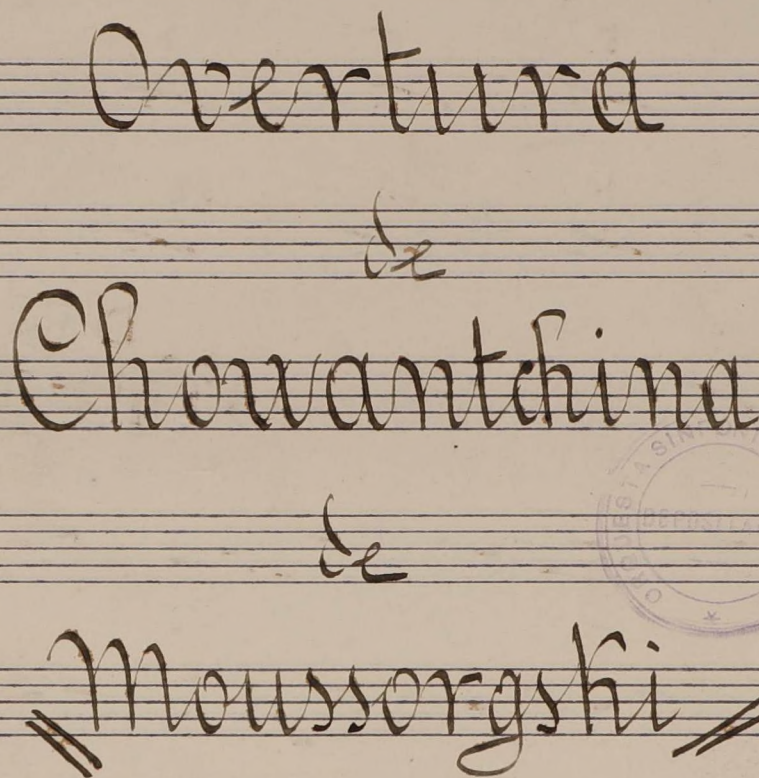 Overtura
de
Chowantchina
de
Moussorgski
ORQUESTA SINF